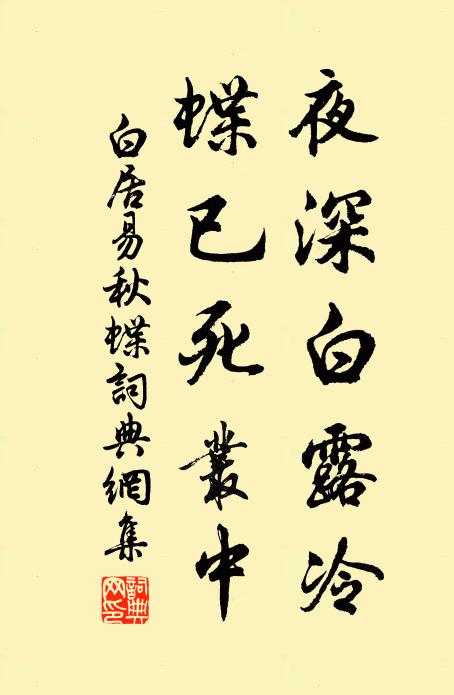 夜深白露冷
蝶已死叢中
白居易秋蝶詞典網集
詞典網印